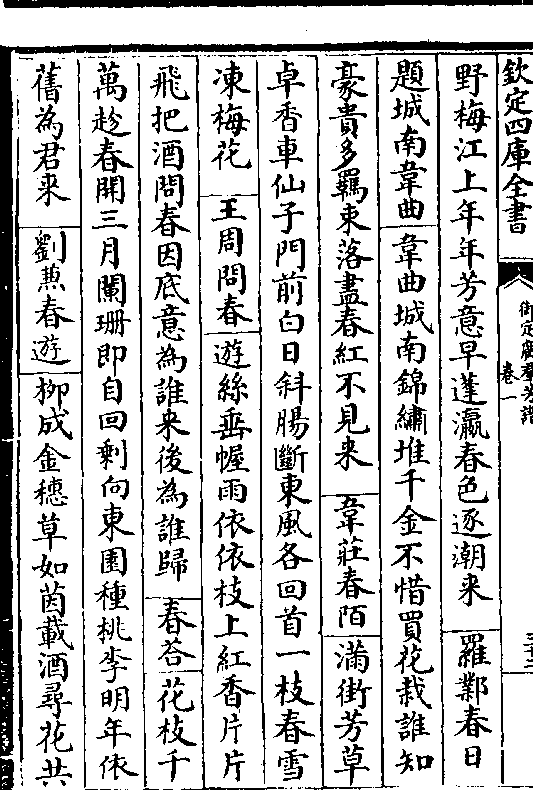 欽定四庫全書
御定廣羣芳譜
卷一
野梅江上年年芳意早蓬瀛春色逐潮来 羅鄴春日
題城南韋曲 韋曲城南錦繡堆千金不惜買花栽誰知
豪貴多羈束落盡春紅不見来 韋莊春陌 滿街芳草
卓香車仙子門前白日斜腸斷東風各回首一枝春雪
凍梅花 王周問春 遊絲垂幄雨依依枝上紅香片片
飛把酒問春因底意為誰来後為誰歸 春荅 花枝千
萬趁春開三月闌珊即自回剩向東園種桃李明年依
舊為君来 劉兼春遊 柳成金穗草如茵載酒尋花共